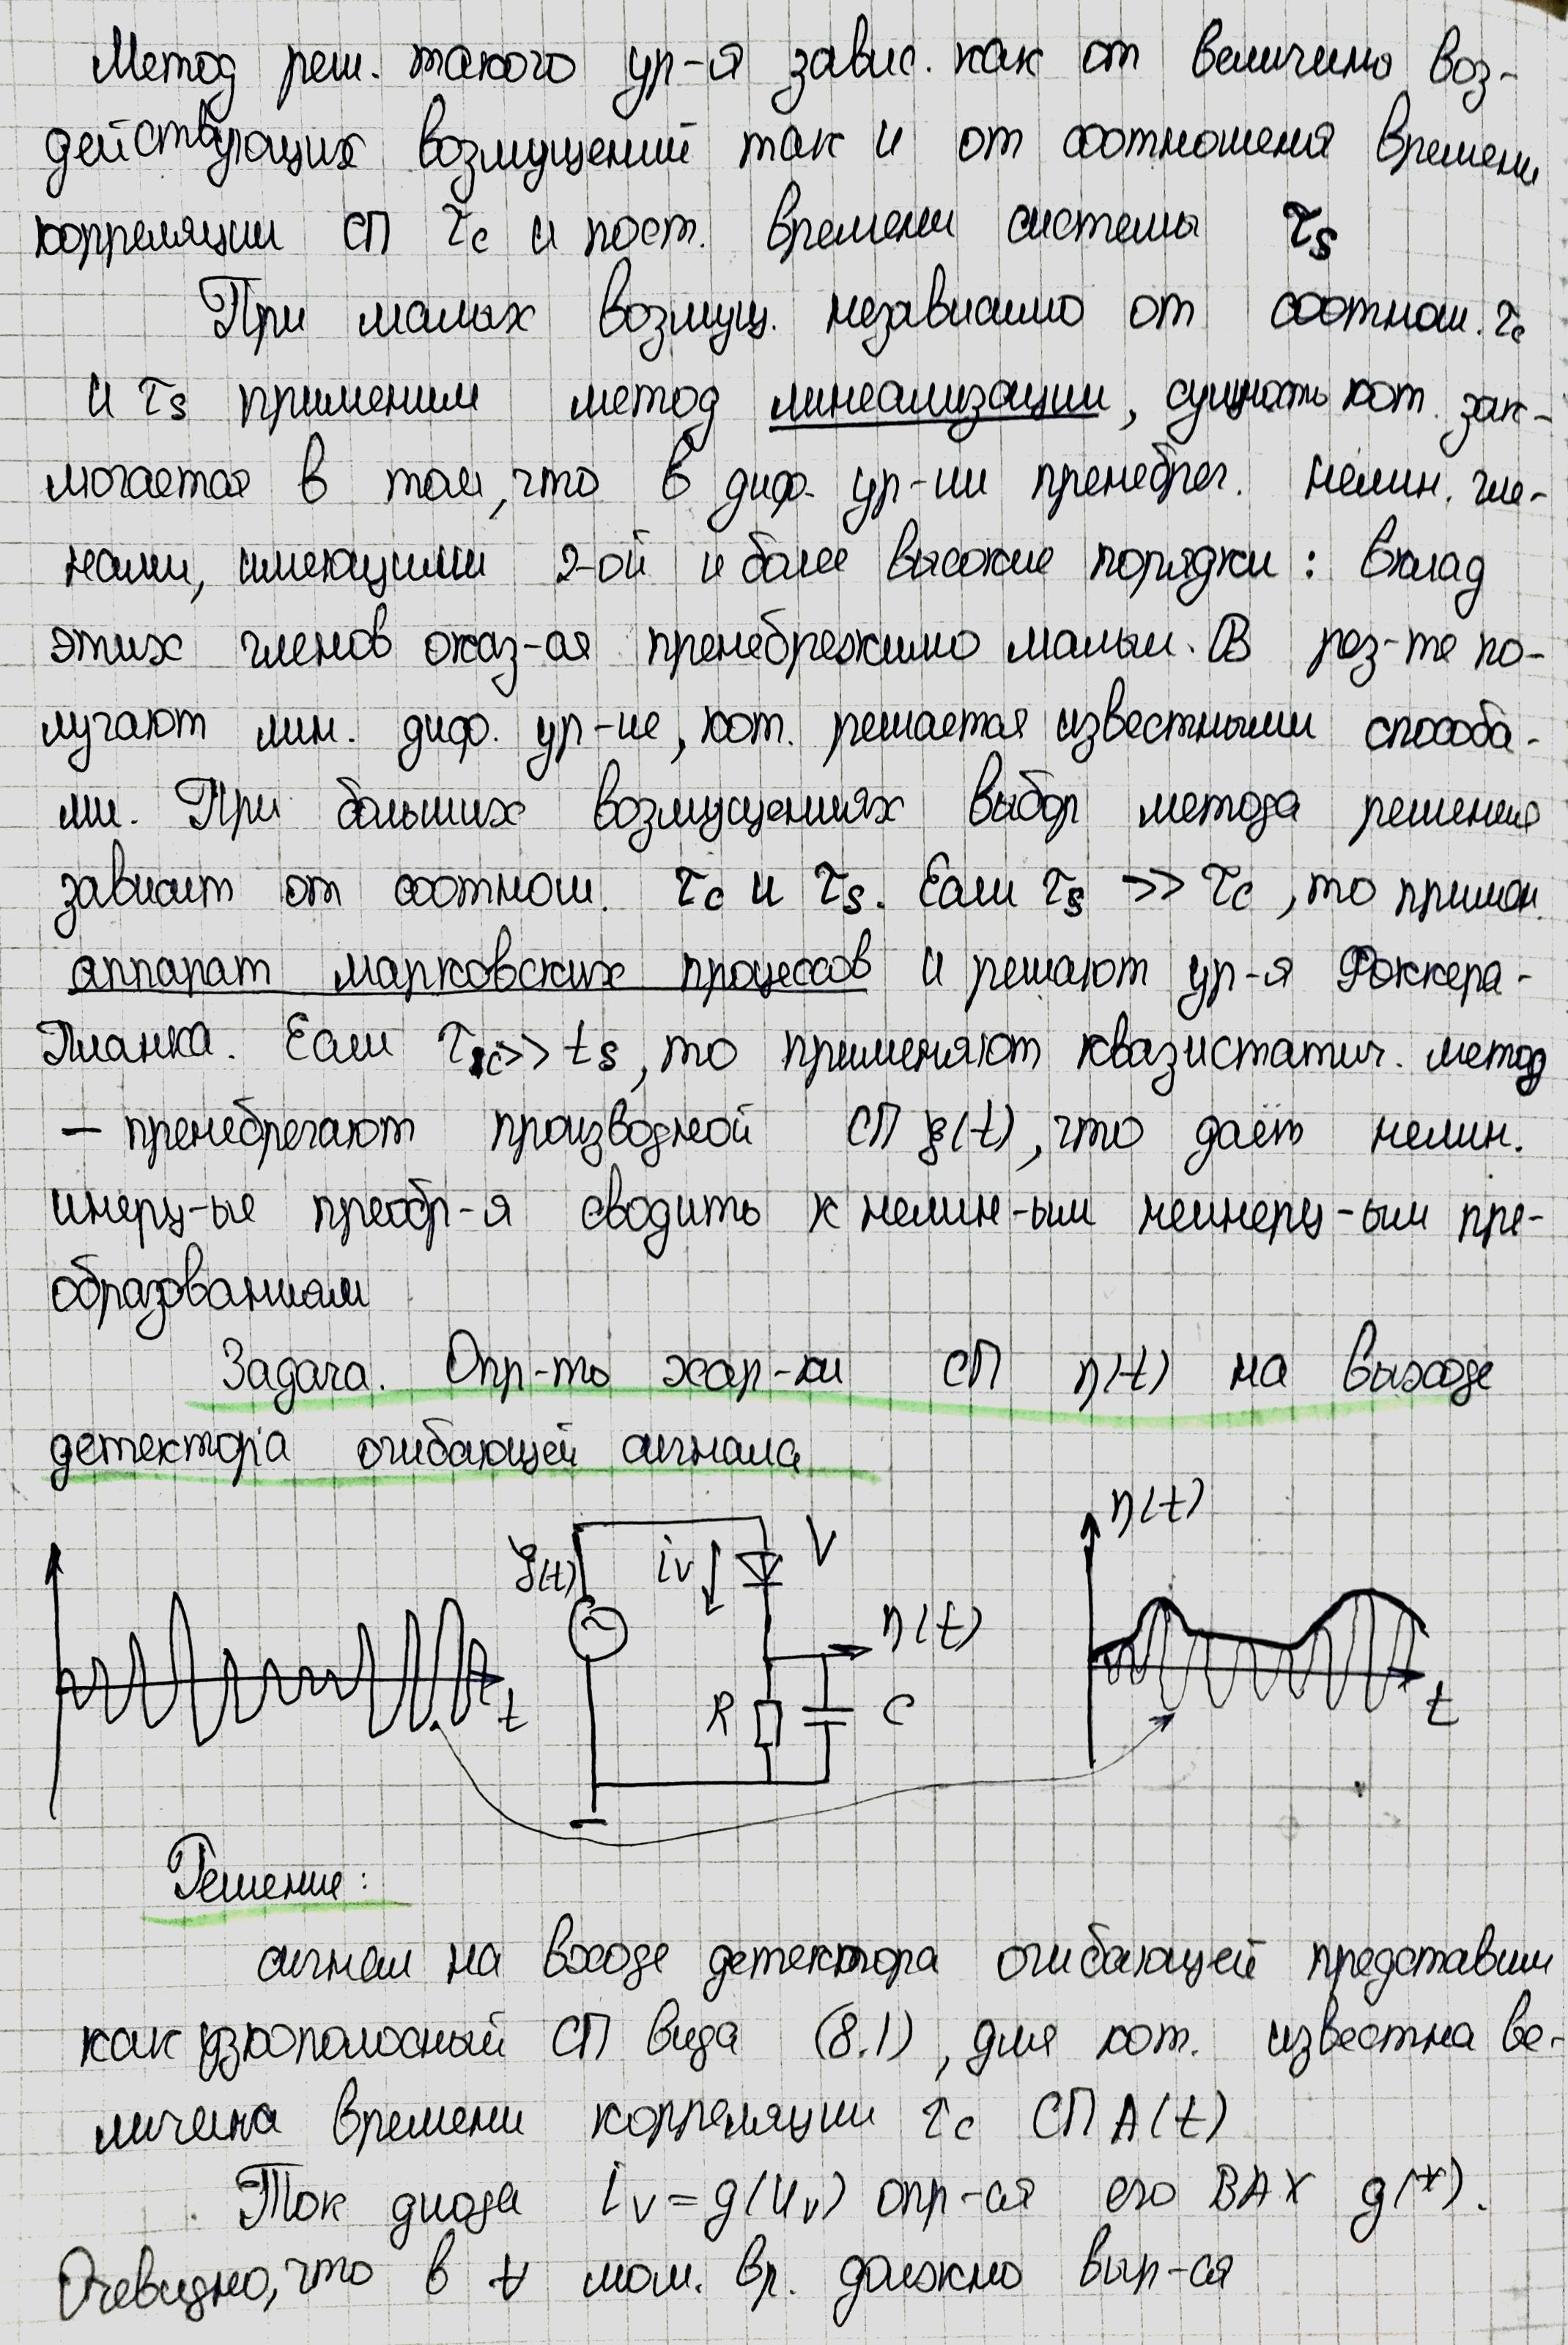 Метод реш. такого ур-я завис. как от величины воз-
действующих возмущений так и от соотношения времени
корреляции СП τc и пост. времени системы τs
При малых возмущ. независимо от соотнош. τc
и τs применим метод линеализации, сущность кот. зак-
лючается в том, что в диф. ур-ии пренебрег. нелин. чле-
нами, имеющими 2-ой и более высокие порядки: вклад
этих членов оказ-ся пренебрежимо малым. В рез-те по-
лучают лин. диф. ур-ие, кот. решается известными способа-
ми. При больших возмущениях выбор метода решения
зависит от соотнош. τc и τs. Если τs >> τc, то примен.
аппарат марковских процессов и решают ур-я Фоккера-
Планка. Если τc >> ts, то применяют квазистатич. метод
— пренебрегают производной СП ξ(t), что даёт нелин.
инерц-ые преобр-я сводить к нелин-ым неинерц-ым пре-
образованиям
Задача. Опр-ть хар-ки СП η(t) на выходе
детектора огибающей сигнала
η(t)
ξ(t) iv V
η(t)
t R C t
Решение:
сигнал на входе детектора огибающей представим
как узкополосный СП вида (8.1), для кот. известна ве-
личина времени корреляции τc СП A(t)
Ток диода iv = g(uv) опр-ся его ВАХ g(*).
Очевидно, что в ∀ мом. вр. должно вып-ся